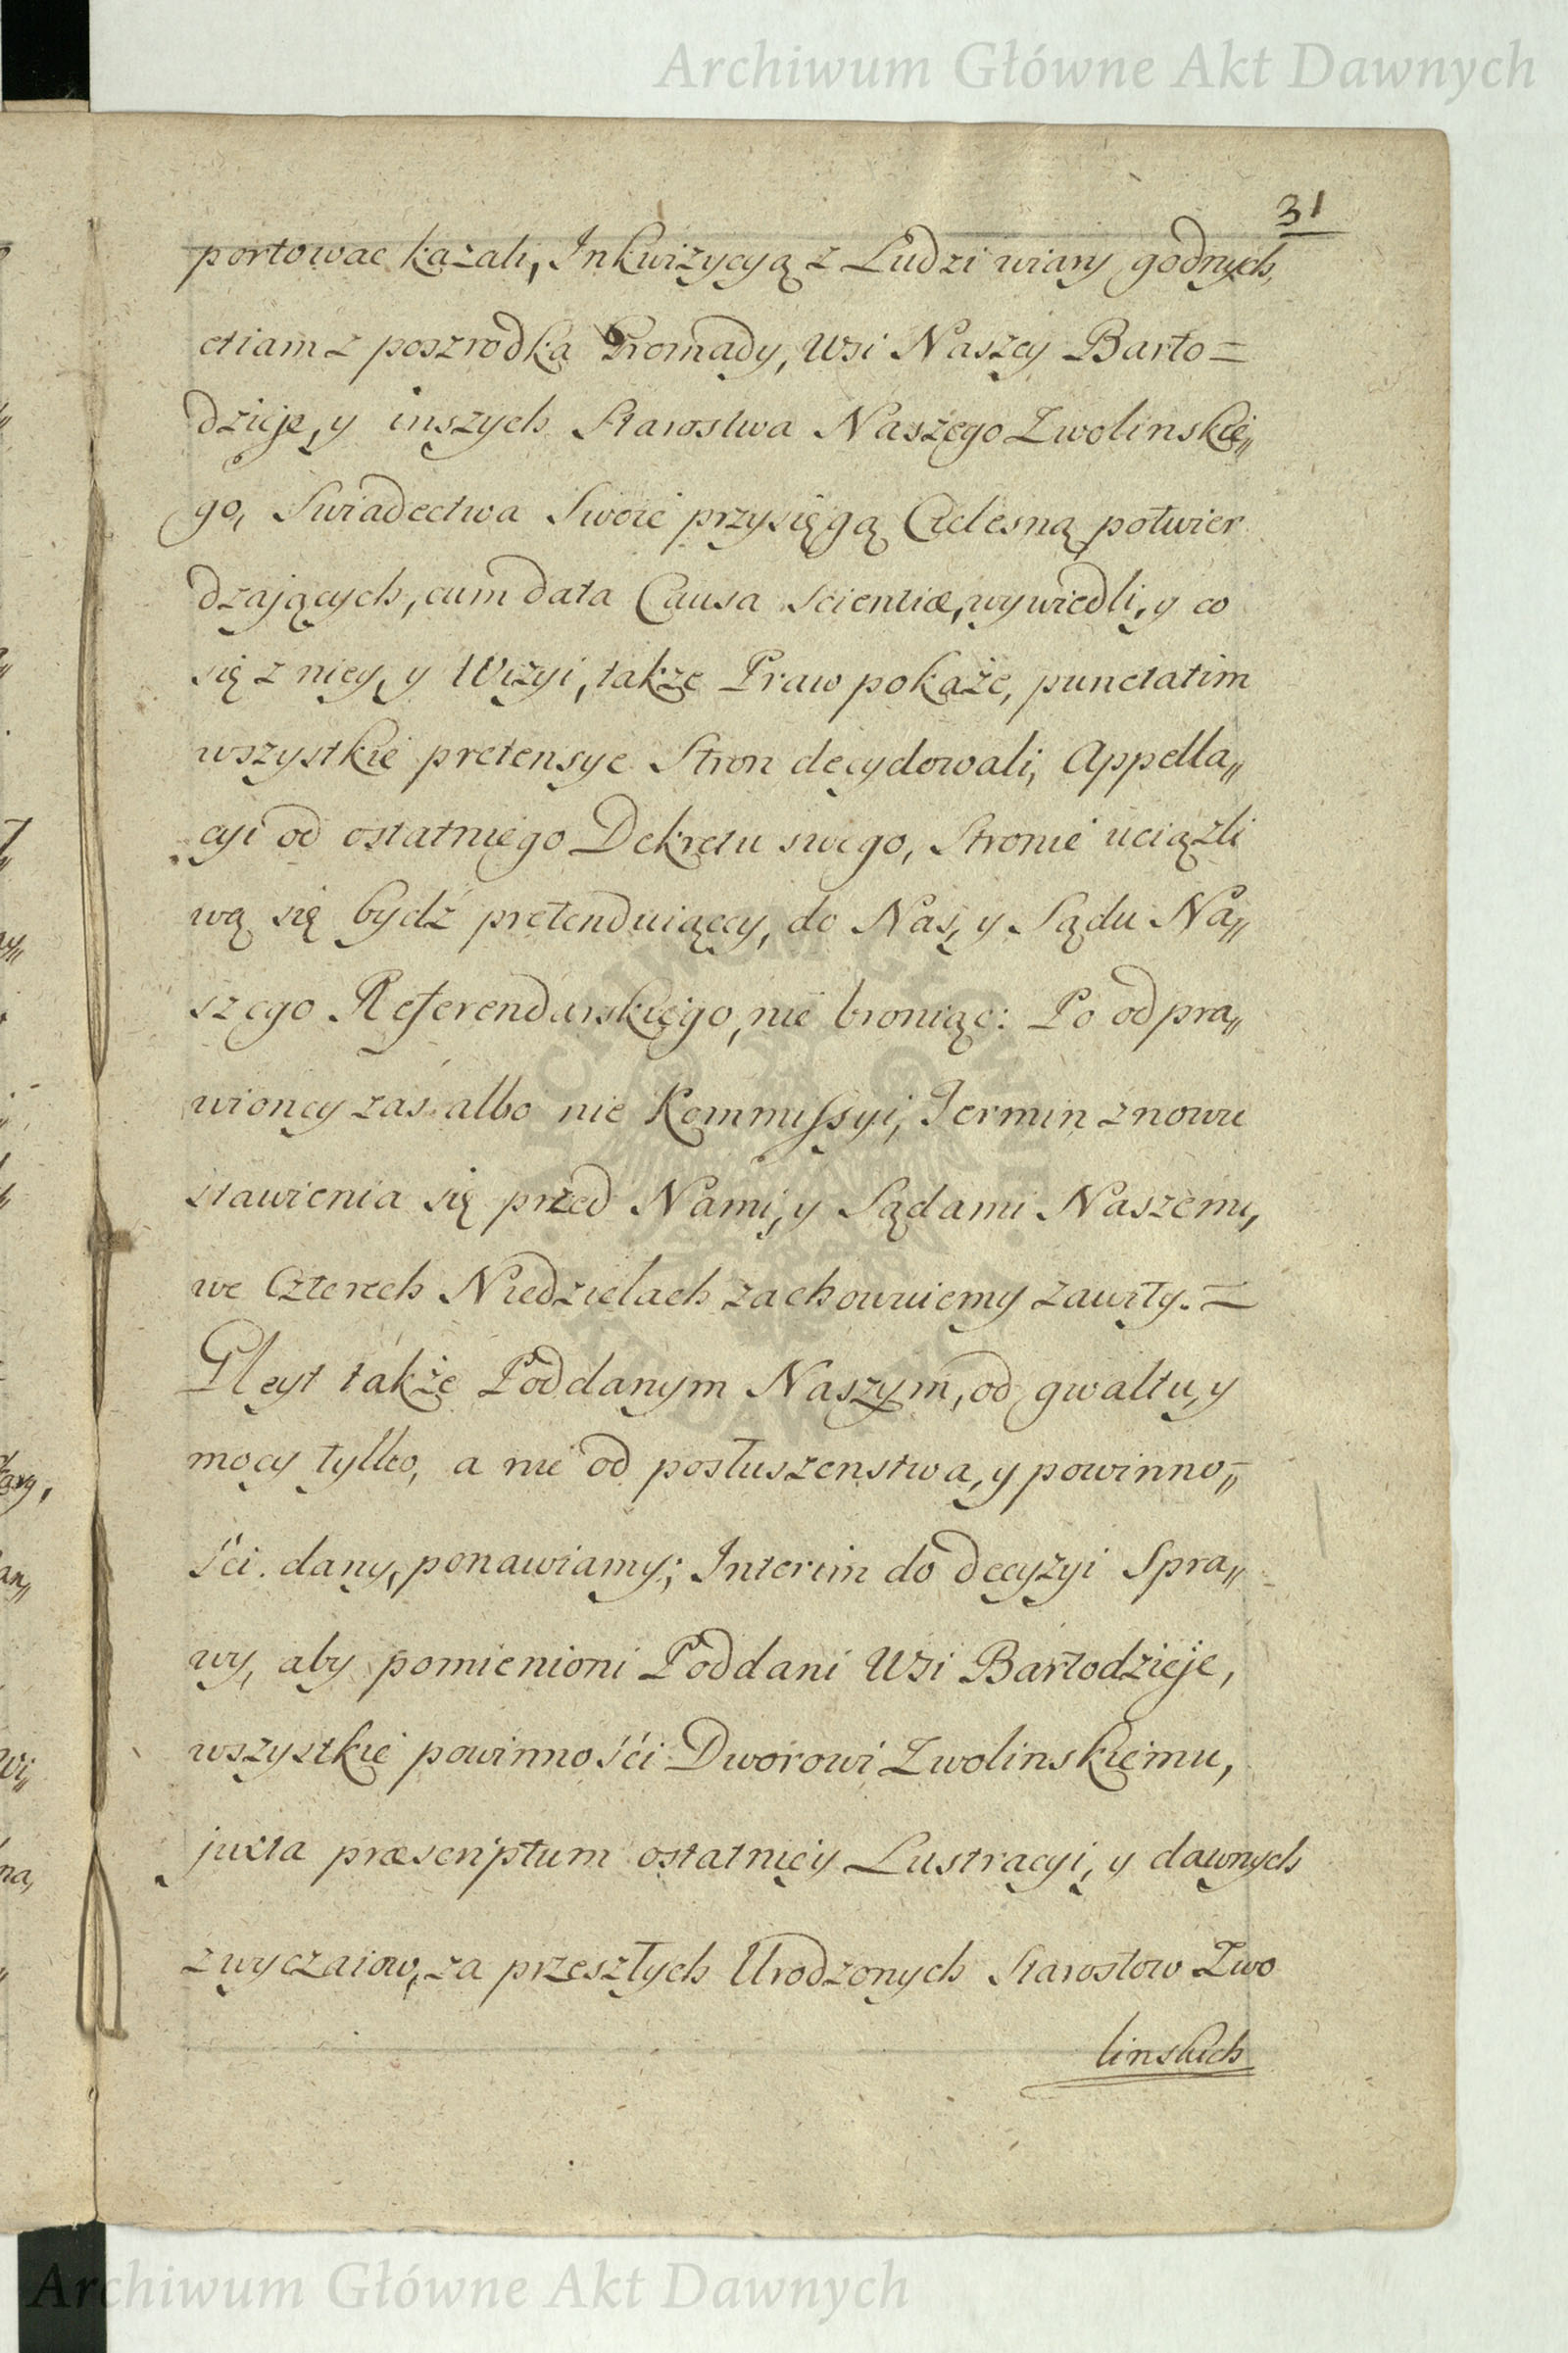 Archiwum Główne Akt Dawnych
31
portowac kazali, Inkwizycyą z Ludzi wiary godnych,
etiam z poszrodka Gromady, Wsi Naszey Barto=
dzieje, y inszych Starostwa Naszego Zwolinskie„
go, Swiadectwa Swoie przysięgą Cielesną potwier
dzających, cum data Causa scientiæ, wywiedli, y co
się z niey, y Wizyi, także Praw pokaże, punctatim
wszystkie pretensye Stron decydowali, Appella„
cyi od ostatniego Dekretu swego, Stronie uciązli
wą się bydź pretenduiącey, do Nas, y Sądu Na„
szego Referendarskiego, nie broniąc: Po odpra„
wioney zas albo nie Kommissyi, Termin znowu
stawienia się przed Nami, y Sądami Naszemi,
we Czterech Niedzielach zachowuiemy zawity. =
Gleyt także Poddanym Naszym, od gwałtu, y
mocy tylko, a nie od posłuszenstwa, y powinno„
ści dany, ponawiamy; Interim do decyzyi Spra„
wy, aby pomienioni Poddani Wsi Bartodzieje,
wszystkie powinności Dworowi Zwolinskiemu,
juxta præscriptum ostatniey Lustracyi, y dawnych
zwyczaiow, za przeszłych Urodzonych Starostow Zwo
linskich
Archiwum Główne Akt Dawnych